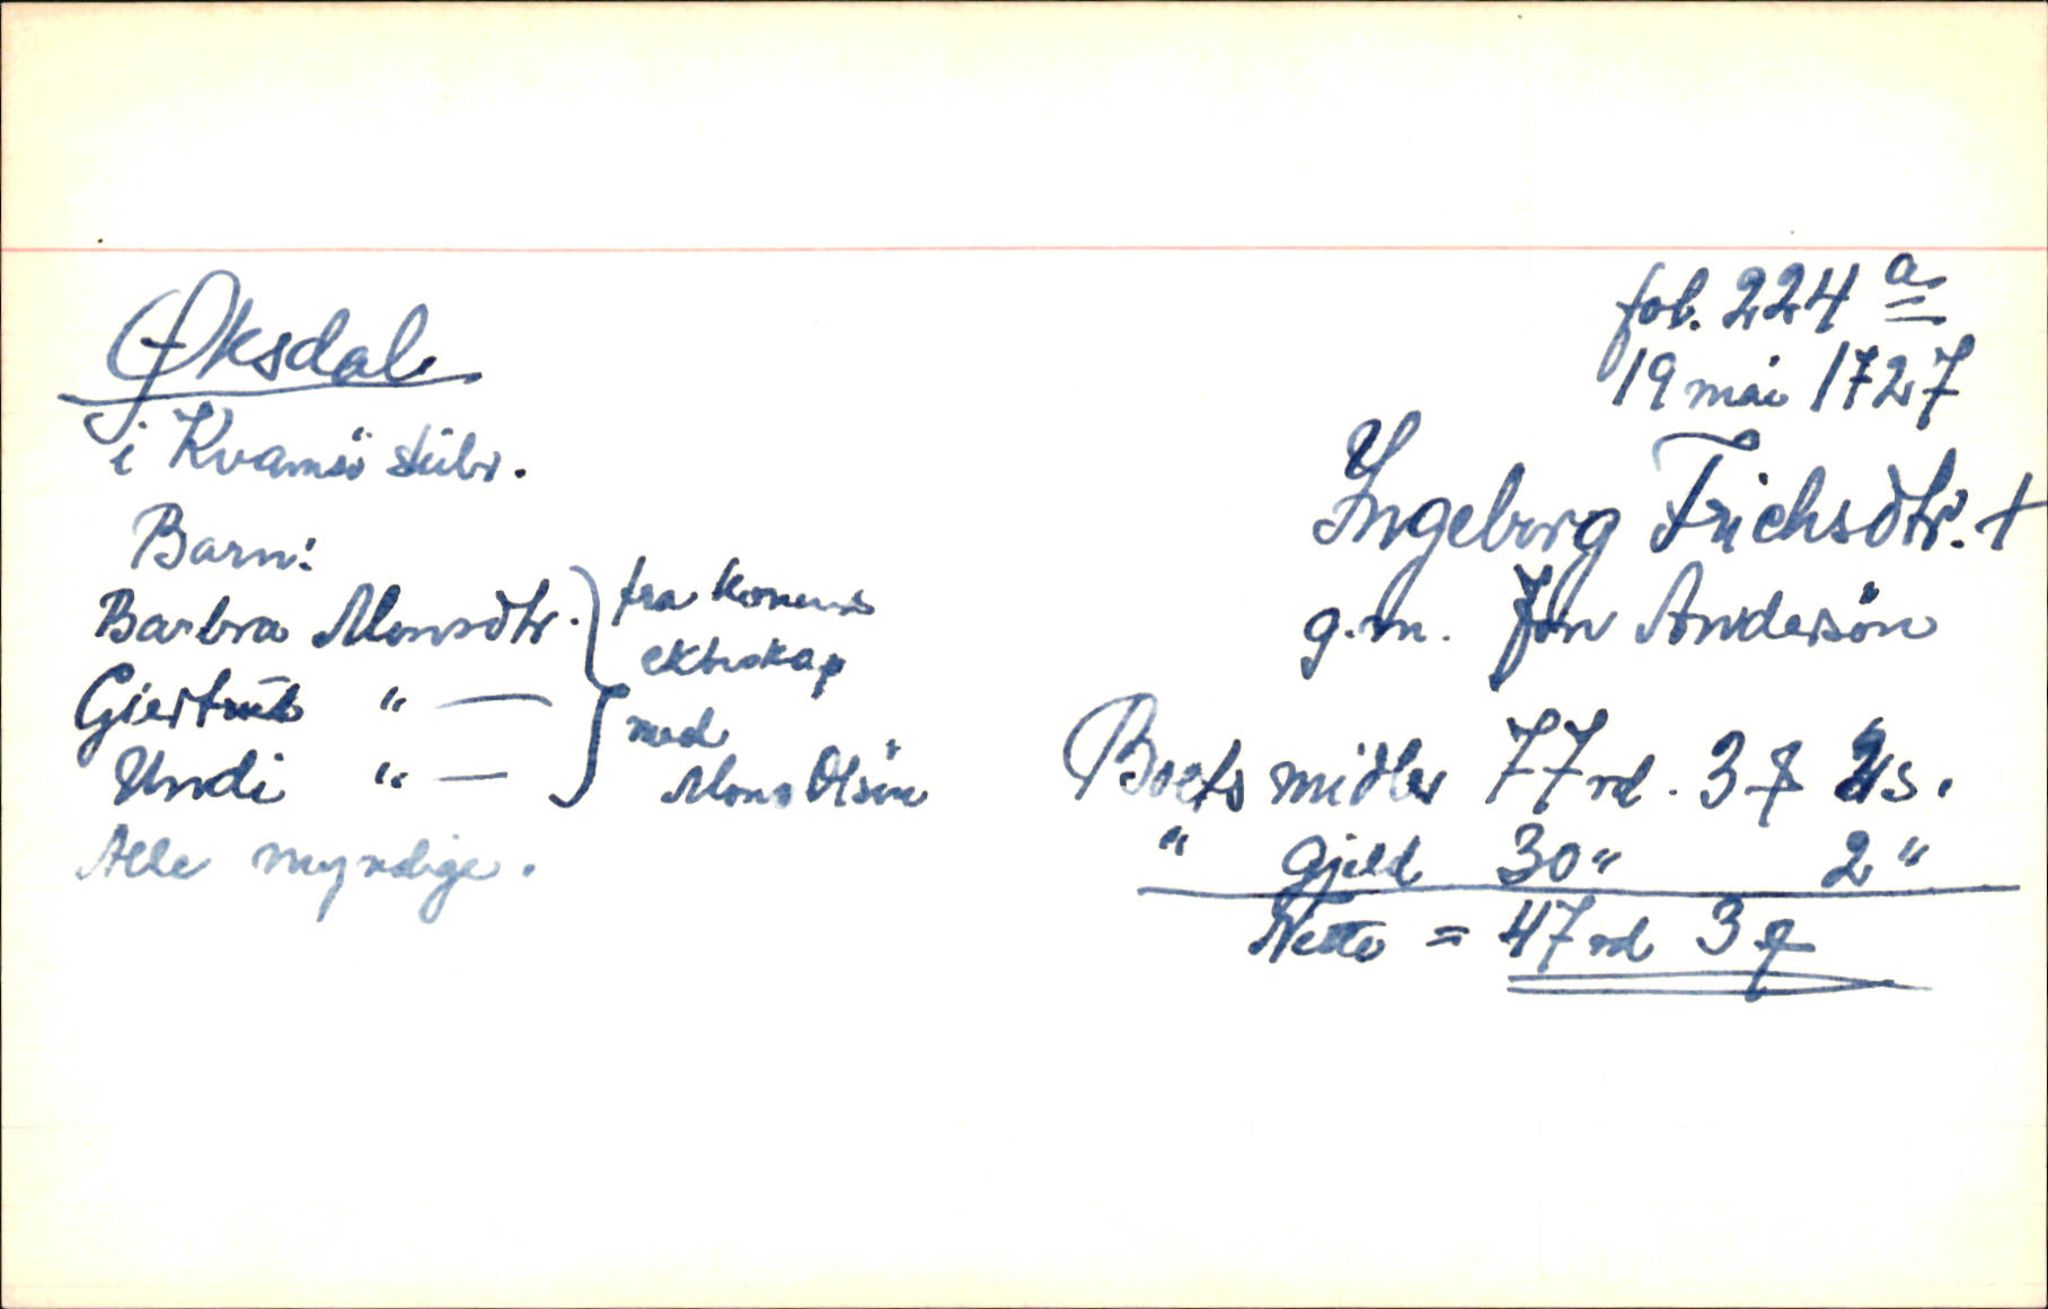 Øksdal
i Kvamsö skibr.
Barn:
Barbra Monsdtr.
Giertrud " —
Undi " —
fra konens
ekteskap
med
Mons Olsön
Alle myndige.
fol. 224 a
19 mai 1727
Ingeborg Frichsdtr. +
g.m. Jon Andersön
Boets midler 77 rd. 3 q 2 s.
" Gjeld 30 " 2 "
Netto = 47 rd 3 q